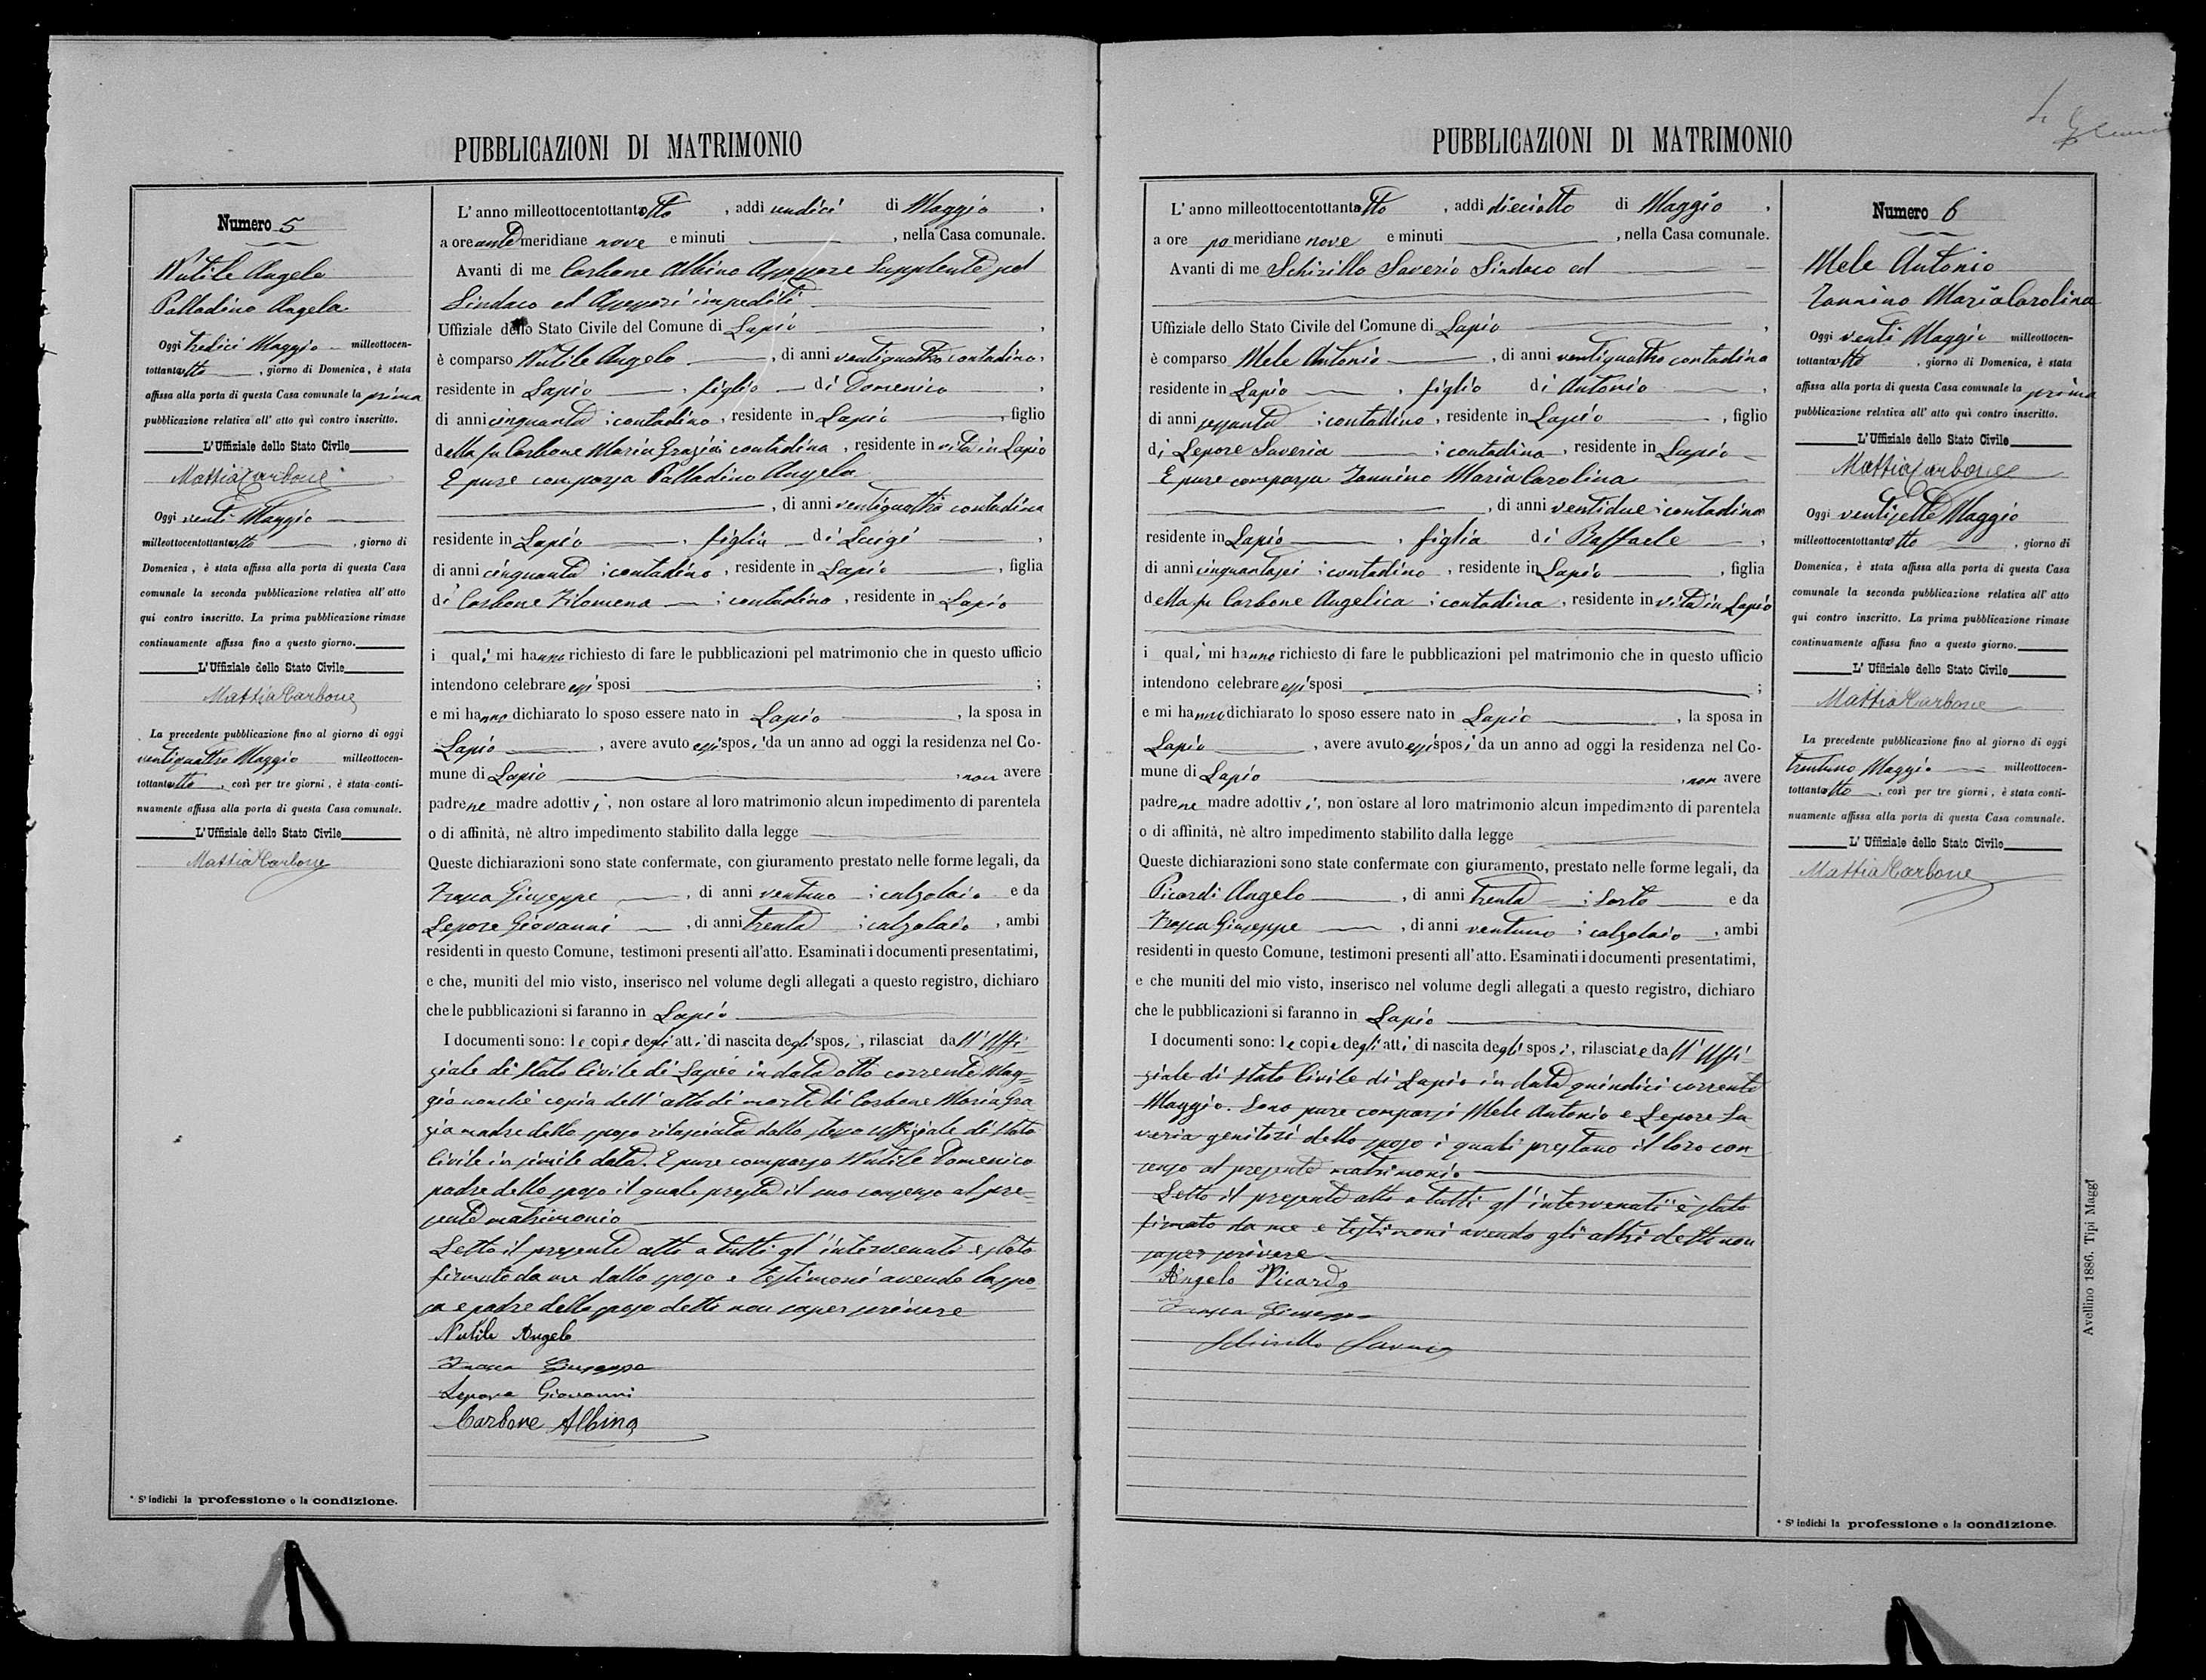 PUBBLICAZIONI DI MATRIMONIO
Numero 5
Nutile Angelo
Palladino Angela
Oggi tredici Maggio milleottocen-
tottantotto, giorno di Domenica, è stata
affissa alla porta di questa Casa comunale la prima
pubblicazione relativa all' atto quì contro inscritto.
L'Uffiziale dello Stato Civile
Mattia Carbone
Oggi venti Maggio
milleottocentottantotto, giorno di
Domenica, è stata affissa alla porta di questa Casa
comunale la seconda pubblicazione relativa all' atto
qui contro inscritto. La prima pubblicazione rimase
continuamente affissa fino a questo giorno.
L'Uffiziale dello Stato Civile
Mattia Carbone
La precedente pubblicazione fino al giorno di oggi
ventiquattro Maggio milleottocen-
tottantotto, così per tre giorni, è stata conti-
nuamente affissa alla porta di questa Casa comunale.
L'Uffiziale dello Stato Civile
Mattia Carbone
* S' indichi la professione o la condizione.
L' anno milleottocentottantotto, addì undici di Maggio,
a ore antemeridiane nove e minuti , nella Casa comunale.
Avanti di me Carbone Albino Assessore Supplente pel
Sindaco ed Assessori impediti
Uffiziale dello Stato Civile del Comune di Lapio,
è comparso Nutile Angelo, di anni ventiquattro contadino,
residente in Lapio, figlio di Domenico,
di anni cinquanta; contadino, residente in Lapio, figlio
della fu Carbone Maria Grazia; contadina, residente in vita in Lapio
E pure comparsa Palladino Angela
, di anni ventiquattro contadina
residente in Lapio, figlia di Luigi,
di anni cinquanta; contadino, residente in Lapio, figlia
di Carbone Filomena; contadina, residente in Lapio
i quali mi hanno richiesto di fare le pubblicazioni pel matrimonio che in questo ufficio
intendono celebrare essi sposi ;
e mi hanno dichiarato lo sposo essere nato in Lapio, la sposa in
Lapio, avere avuto essi sposi da un anno ad oggi la residenza nel Co-
mune di Lapio, non avere
padre ne madre adottivi, non ostare al loro matrimonio alcun impedimento di parentela
o di affinità, nè altro impedimento stabilito dalla legge
Queste dichiarazioni sono state confermate, con giuramento prestato nelle forme legali, da
Frasca Giuseppe, di anni ventuno; calzolaio e da
Lepore Giovanni, di anni trenta; calzolaio, ambi
residenti in questo Comune, testimoni presenti all'atto. Esaminati i documenti presentatimi,
e che, muniti del mio visto, inserisco nel volume degli allegati a questo registro, dichiaro
che le pubblicazioni si faranno in Lapio
I documenti sono: le copie degli atti di nascita degli sposi, rilasciat dall' Uffi-
ziale di Stato Civile di Lapio in data otto corrente Mag-
gio nonchè copia dell' atto di morte di Carbone Maria Gra-
zia madre dello sposo rilasciata dallo stesso Uffiziale di Stato
Civile in simile data. E pure comparso Nutile Domenico
padre dello sposo il quale presta il suo consenso al pre-
sente matrimonio
Letto il presente atto a tutti gl' intervenuti è stato
firmato da me dallo sposo e testimoni avendo la spo
sa e padre dello sposo detto non saper scrivere
Nutile Angelo
Frasca Giuseppe
Lepore Giovanni
Carbone Albino
PUBBLICAZIONI DI MATRIMONIO
L' anno milleottocentottantotto, addì dieciotto di Maggio,
a ore pomeridiane nove e minuti , nella Casa comunale.
Avanti di me Schirillo Saverio Sindaco ed
Uffiziale dello Stato Civile del Comune di Lapio,
è comparso Mele Antonio, di anni ventiquattro contadino
residente in Lapio, figlio di Antonio,
di anni sessanta; contadino, residente in Lapio, figlio
di Lepore Saveria; contadina, residente in Lapio
E pure comparsa Iannino Maria Carolina
, di anni ventidue; contadina
residente in Lapio, figlia di Raffaele,
di anni cinquantasei; contadino, residente in Lapio, figlia
della fu Carbone Angelica; contadina, residente in vita in Lapio
i quali mi hanno richiesto di fare le pubblicazioni pel matrimonio che in questo ufficio
intendono celebrare essi sposi ;
e mi hanno dichiarato lo sposo essere nato in Lapio, la sposa in
Lapio, avere avuto essi sposi da un anno ad oggi la residenza nel Co-
mune di Lapio, non avere
padre ne madre adottivi, non ostare al loro matrimonio alcun impedimento di parentela
o di affinità, nè altro impedimento stabilito dalla legge
Queste dichiarazioni sono state confermate con giuramento, prestato nelle forme legali, da
Picardi Angelo, di anni trenta; Sarto e da
Frasca Giuseppe, di anni ventuno; calzolaio, ambi
residenti in questo Comune, testimoni presenti all'atto. Esaminati i documenti presentatimi,
e che muniti del mio visto, inserisco nel volume degli allegati a questo registro, dichiaro
che le pubblicazioni si faranno in Lapio
I documenti sono: le copie degli atti di nascita degli sposi, rilasciate dall' Uffi-
ziale di Stato Civile di Lapio in data quindici corrente
Maggio. Sono pure comparsi Mele Antonio e Lepore Sa
veria genitori dello sposo i quali prestano il loro con-
senso al presente matrimonio.
Letto il presente atto a tutti gl' intervenuti è stato
firmato da me e testimoni avendo gli altri detto non
saper scrivere
Angelo Picardo
Frasca Giuseppe
Schirillo Saverio
Numero 6
Mele Antonio
Iannino Maria Carolina
Oggi venti Maggio milleottocen-
tottantotto, giorno di Domenica, è stata
affissa alla porta di questa Casa comunale la prima
pubblicazione relativa all' atto quì contro inscritto.
L'Uffiziale dello Stato Civile
Mattia Carbone
Oggi ventisette Maggio
milleottocentottantotto, giorno di
Domenica, è stata affissa alla porta di questa Casa
comunale la seconda pubblicazione relativa all' atto
qui contro inscritto. La prima pubblicazione rimase
continuamente affissa fino a questo giorno.
L' Uffiziale dello Stato Civile
Mattia Carbone
La precedente pubblicazione fino al giorno di oggi
trentuno Maggio milleottocen-
tottantotto, così per tre giorni, è stata conti-
nuamente affissa alla porta di questa Casa comunale.
L' Uffiziale dello Stato Civile
Mattia Carbone
* S' indichi la professione o la condizione.
Avellino 1886. Tipi Maggi